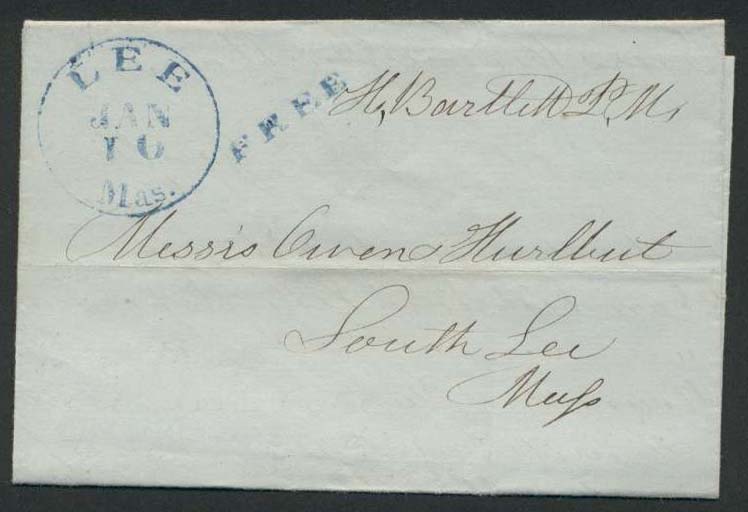 LEE
JAN
10
Mas.
FREE
H. Bartlett P. M.
Messrs Owen & Hurlbut
South Lee
Mass